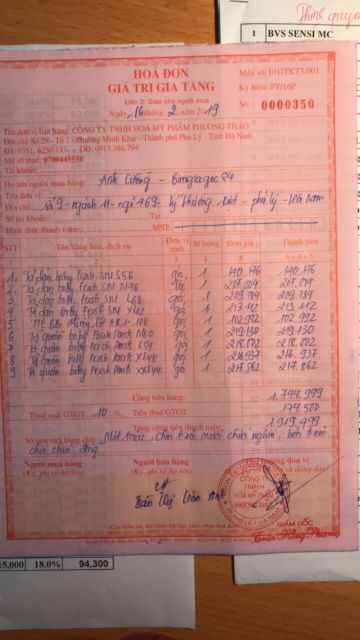 Thịnh
1 BVS SENSI MC
HOÁ ĐƠN
GIÁ TRỊ GIA TĂNG
Liên 2: Giao cho người mua
Ngày 16 tháng 2 năm 2019
Mẫu số: 01GTKT3/001
Ký hiệu: PT/16P
Số: 0000350
Tên đơn vị bán hàng: CÔNG TY TNHH HOÁ MỸ PHẨM PHƯƠNG THẢO
Địa chỉ: Số 29 - Tổ 7 - Phường Minh Khai - Thành phố Phủ Lý - Tỉnh Hà Nam
ĐT: 0351. 6250.143. - DĐ: 0913.386.794
Mã số thuế: 0700445558
Tài khoản:
Họ tên người mua hàng: Anh Cường - Bimgiagoc 84
Tên đơn vị:
Địa chỉ: số 9 - ngách 11 - ngõ 469 - Lý Thường Kiệt - phủ lý - Hà Nam
Số tài khoản: Tại:
Hình thức thanh toán: MST:
STT Tên hàng hoá, dịch vụ Đơn vị tính Số lượng Đơn giá Thành tiền
1 Tã dán baby Fresh SNI S56 gói 1 140.176 140.176
2 Tã dán baby Fresh SNI N76 gói 1 207.004 207.004
3 Tã dán baby Fresh SNI L68 gói 1 209.784 209.784
4 Tã dán baby Fresh SNI XL62 gói 1 213.112 213.112
5 1 102.992 102.992
6 Tã quần baby Fresh Pants M60 gói 1 219.130 219.130
7 Tã quần baby Fresh Pants L54 gói 1 218.002 218.002
8 Tã quần baby Fresh Pants XL48 gói 1 216.937 216.937
9 Tã quần baby Fresh Pants XXL44 gói 1 217.862 217.862
Cộng tiền hàng: 1.744.999
Thuế suất GTGT: 10 % Tiền thuế GTGT: 174.500
Tổng cộng tiền thanh toán: 1.919.499
Số tiền viết bằng chữ: Một triệu, chín trăm mười chín nghìn, bốn trăm
chín chín đồng
Người mua hàng Người bán hàng
(Ký, ghi rõ họ tên) (Ký, ghi rõ họ tên)
CÔNG TY
TNHH
HOÁ MỸ PHẨM
PHƯƠNG THẢO
GIÁM ĐỐC
15,000 18.0% 94,300